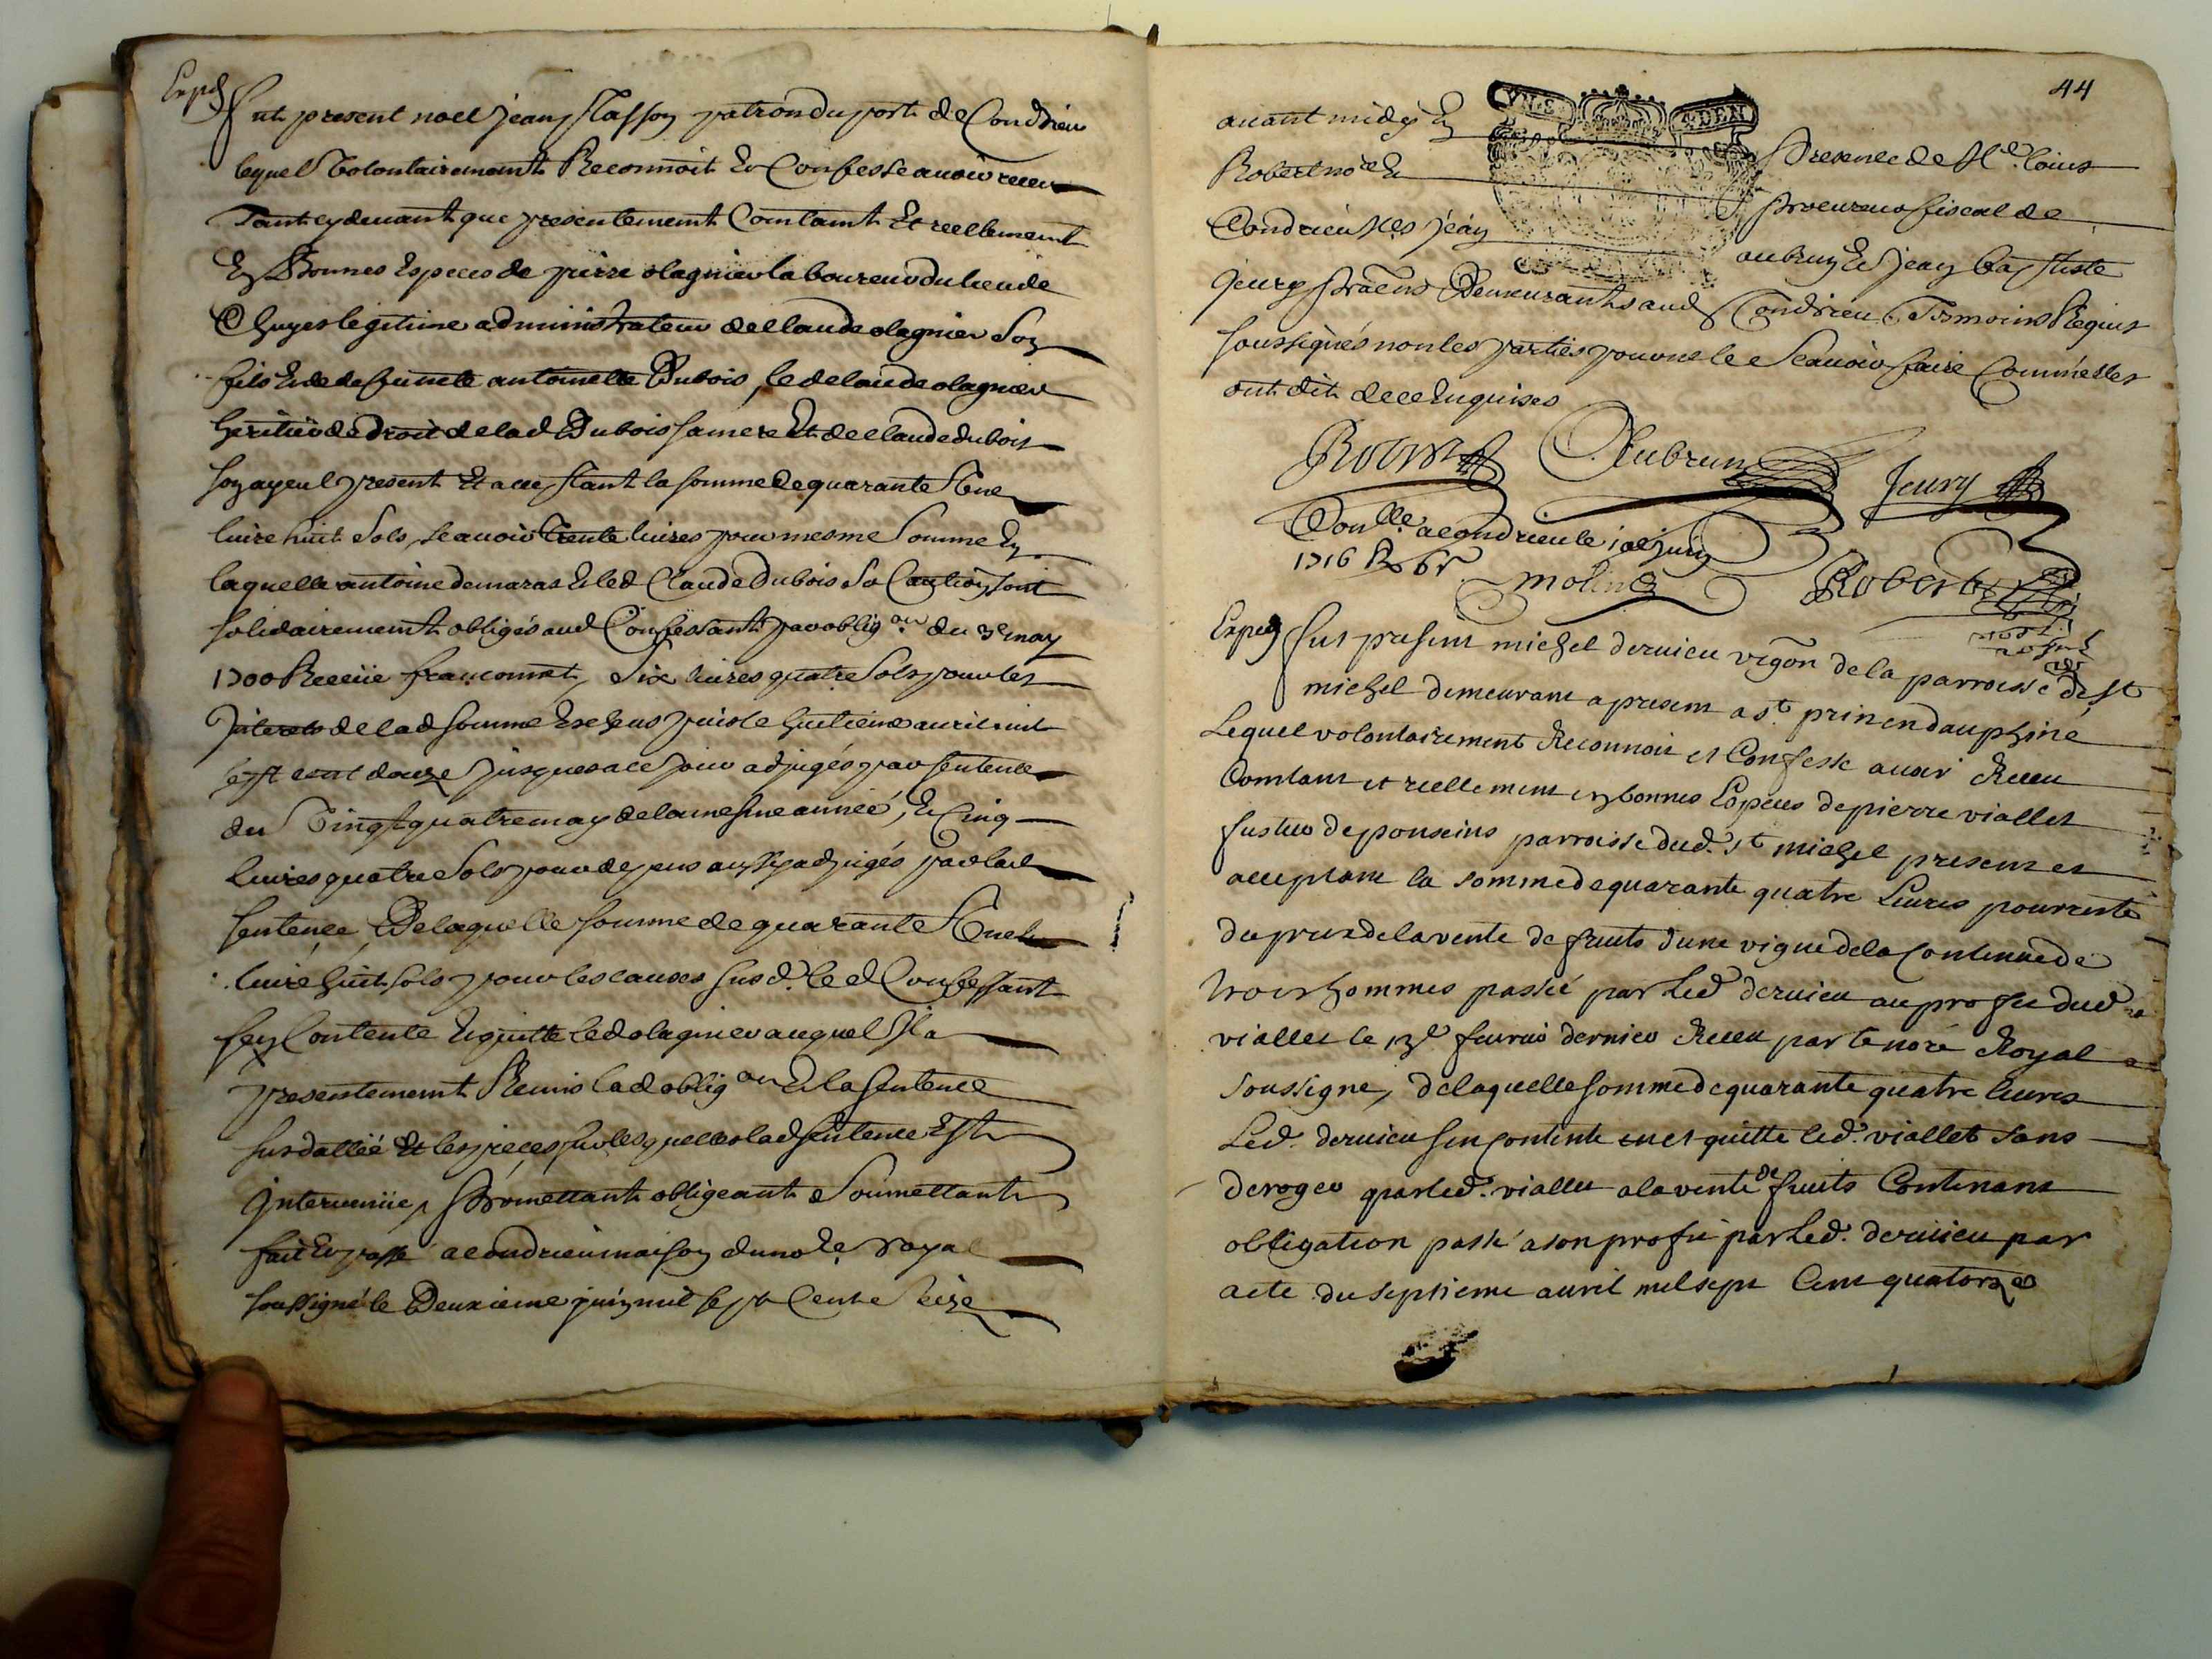 Exped
fut present noel jean flasson patron du port de Condrieu
lequel volontairement Reconnoit Et Confesse auoir receu
Tant cy deuant que presentement Comtamt Et reellement
En Bonnes Especes de pierre olagnier laboureur du lieu de
Chuyes legitime administrateur de claude olagnier Son
fils Et de defuncte antoinette Dubois, led claude olagnier
heritier de Droit de lad Dubois sa mere Et de claude dubois
son ayeul present Et acceptant la somme de quarante Une
liure huit Sols, scauoir trente liures pour mesme Somme En
laquelle antoine demaras Et led Claude Dubois Sa Caution sont
solidairement obligés aud Confessant par oblig.on du 3e may
1700 Receüe franconnet, Six liures quatre Sols pour les
Jnterets de lad somme Escheus puis le huitieme auril mil
sept cent douze Jusques a ce jour adjugés par sentence
du Vingt quatre may de la mesme année, Et Cinq
liures quatre Sols pour depens aussy adjugés par lad
sentence, De laquelle somme de quarante Une
liure huit sols pour les causes susd. led Confessant
sen Contente Et quitte led olagnier auquel Il a
presentement Remis lad oblig.on Et la sentence
susdattée Et les pieces sur lesquelles lad sentence Est
Jnteruenüe, Promettant obligeant Soumettant
fait Et passé a condrieu maison du no.re royal
soussigné le Deuxieme juin mil sept Cent Seize
44
auant midy En Presence de Me. Louis
Robert no.re Et Procureur fiscal de
Condrieu Srs jean aubrun Et Jean baptiste
Jeury Pra.ens Demeurants aud Condrieu Temoins Requis
soussignés non les parties pour ne le Scauoir faire Comme Elles
ont dit de ce Enquises
Robert Aubrun Jeury
Con.lle a condrieu le juin
1716 R
molin Robert
Exped fut present michel deruieu vig.on de la parroisse de st
michel demeurant a present a st prin en dauphiné
Lequel volontairement Reconnoit et Confesse auoir Receu
Comtant et reellement en bonnes Especes de pierre viallet
fustier de ponseins parroisse dud. st michel present et
acceptant la somme de quarante quatre Liures pour reste
du prix de la vente de fruits dune vigne de la Contenue de
trois hommes passée par Led deruieu au profit dud
viallet le 13e feurier dernier Receu par le no.re Royal
soussigne, de laquelle somme de quarante quatre liures
Led. deruieu sen contente et quitte led. viallet sans
deroger par led. viallet a la vente de fruits Contenant
obligation passé a son profit par Led. deruieu par
acte du septieme auril mil sept Cent quatorze